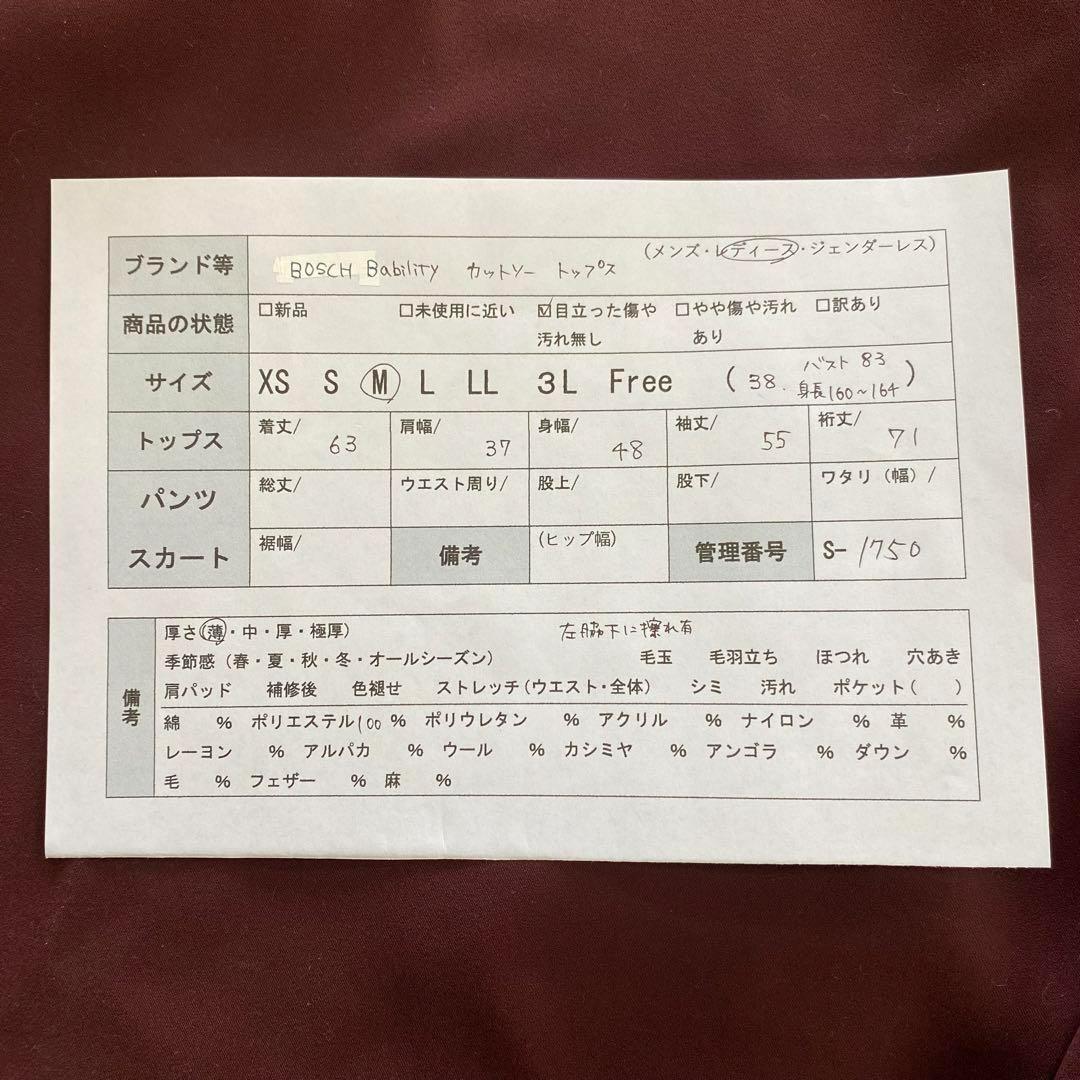 ブランド等 BOSCH Bability カットソー トップス (メンズ・レディース・ジェンダーレス)
商品の状態 □新品 □未使用に近い ☑目立った傷や汚れ無し □やや傷や汚れあり □訳あり
サイズ XS S M L LL 3L Free (38. バスト 83 身長160~164)
トップス 着丈/ 63 肩幅/ 37 身幅/ 48 袖丈/ 55 裄丈/ 71
パンツ 総丈/ ウエスト周り/ 股上/ 股下/ ワタリ(幅)/
スカート 裾幅/ 備考 (ヒップ幅) 管理番号 S-1750
備考
厚さ(薄・中・厚・極厚) 左脇下に擦れ有
季節感(春・夏・秋・冬・オールシーズン) 毛玉 毛羽立ち ほつれ 穴あき
肩パッド 補修後 色褪せ ストレッチ(ウエスト・全体) シミ 汚れ ポケット( )
綿 % ポリエステル100 % ポリウレタン % アクリル % ナイロン % 革 %
レーヨン % アルパカ % ウール % カシミヤ % アンゴラ % ダウン %
毛 % フェザー % 麻 %